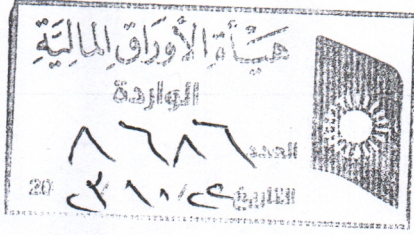 هَيْأَةِ الأَوْرَاقِ المَالِيَّةِ
الواردة
العدد ٨٦٨٦
التاريخ 20